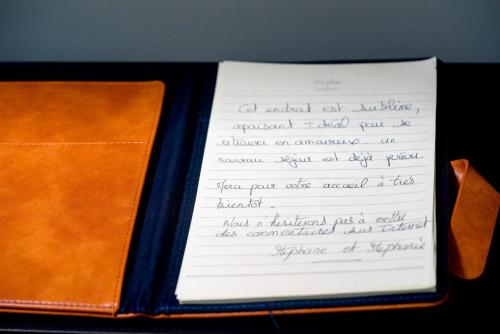 Cet endroit est sublime,
apaisant Idéal pour se
retrouver en amoureux. un
nouveau séjour est déjà prévu.
Merci pour votre accueil à très
bientôt.
Nous n'hésiterons pas à mettre
des commentaires sur Internet
Stéphane et Stéphanie